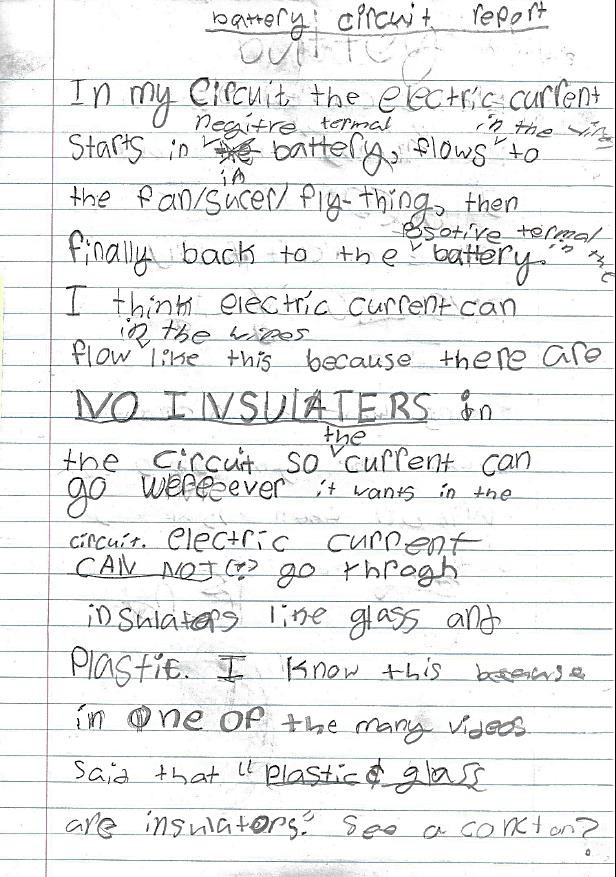 battery circuit report
In my Circuit the electric current
negitve termal in the wire
Starts in the battery, flows to
in
the fan/sucer/ fly-thing, then
posotive termal
finally back to the battery. in the
I think electric current can
in the wires
flow like this because there are
NO INSULATERS in
the
the circuit so current can
go wereeever it wants in the
circuit. electric current
CAN NOT (?) go throgh
insulaters like glass and
Plastic. I know this because
in One of the many videos
Said that "plastic & glass
are insulators." See a